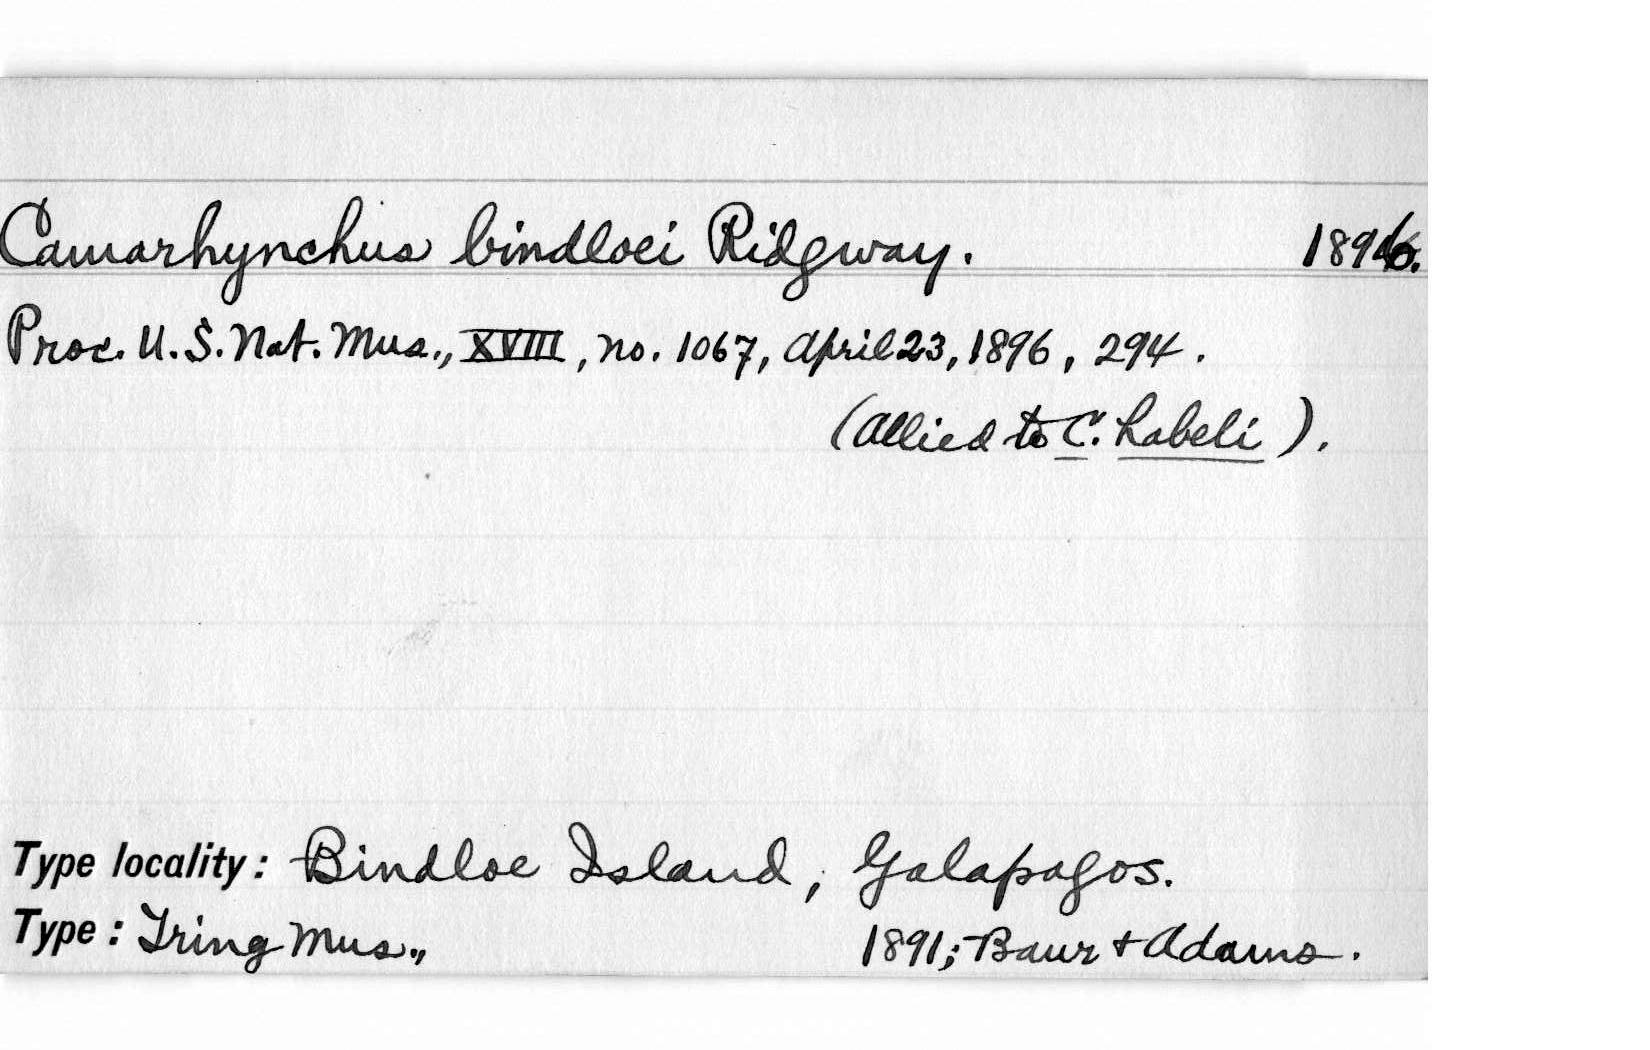 Camarhynchus bindloei Ridgway. 1896.
Proc. U.S. Nat. Mus., XVIII, no. 1067, April 23, 1896, 294.
(Allied to C. habeli).
Type locality: Bindloe Island, Galapagos.
Type: Tring Mus., 1891; Baur + Adams.